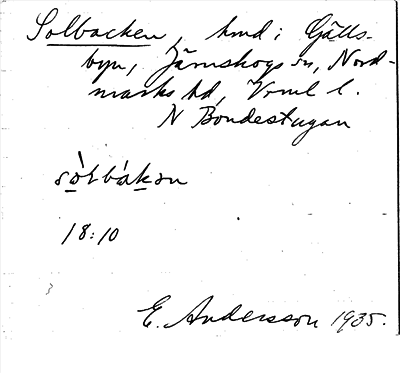 Solbacken, hmd i Gälls-
byn, Järnskogs sn, Nord-
marks hd, Vrml l.
N Bondestugan
sòlbákən
18:10
E. Andersson 1935.